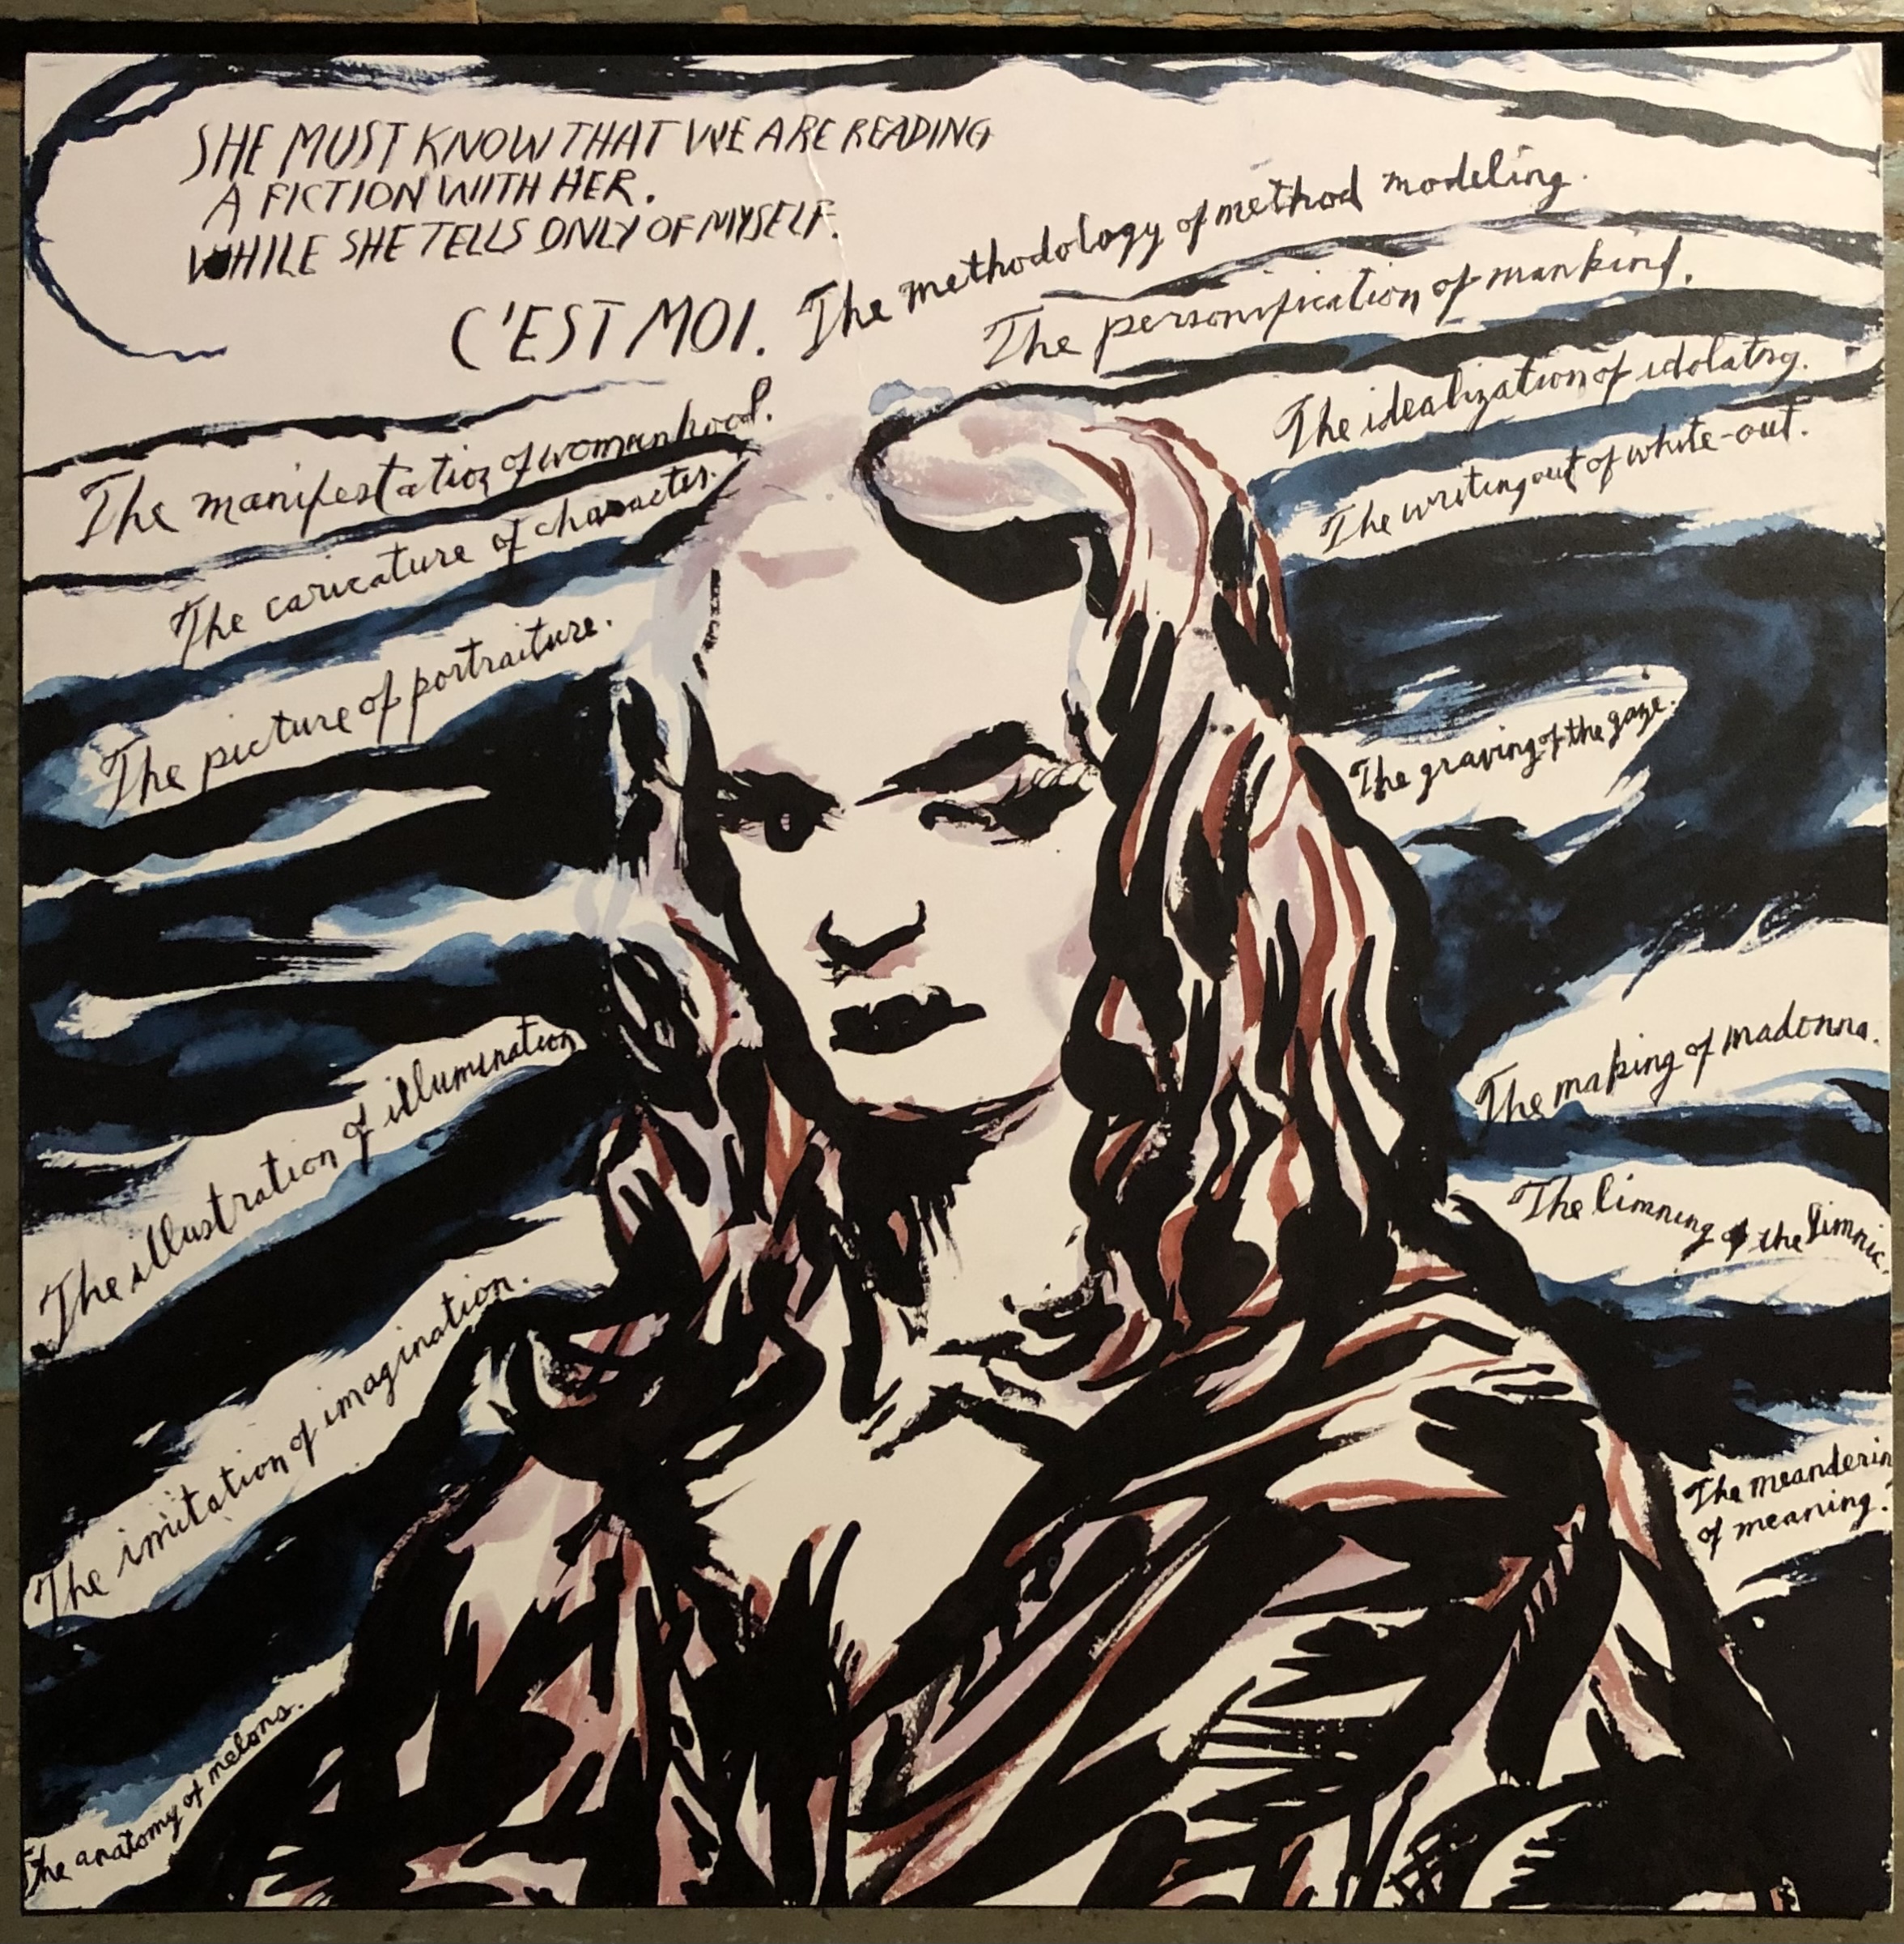 SHE MUST KNOW THAT WE ARE READING
A FICTION WITH HER.
WHILE SHE TELLS ONLY OF MYSELF.
C'EST MOI. The methodology of method modeling.
The personification of mankind.
The idealization of idolatry.
The writing out of white-out.
The manifestation of womanhood.
The caricature of character.
The picture of portraiture.
The graving of the gaze.
The illustration of illumination
The making of madonna.
The limning of the limnic.
The imitation of imagination.
The meanderin
of meaning.
The anatomy of melons.